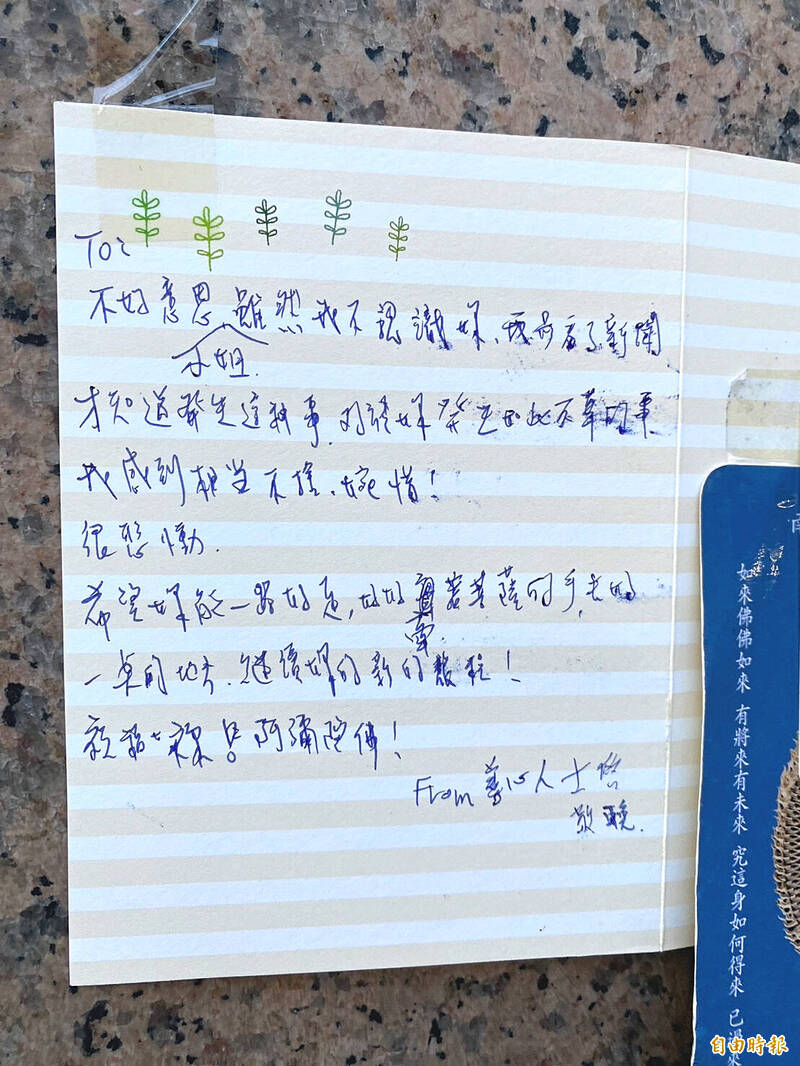 To:
不好意思雖然我不認識妳、我剛看了新聞
小姐.
才知道發生這執事. 對於妳發生如此不幸的事
我感到相當不捨、婉惜!
很悲慟.
希望妳能一路好走, 好好牽著菩薩的手, 去好
一點的地方. 繼續妳的新的旅程!
祝福妳 阿彌陀佛!
From 善心人士
敬輓.
如來佛佛如來 有將來有未來 究這身如何得來 已過來
自由時報